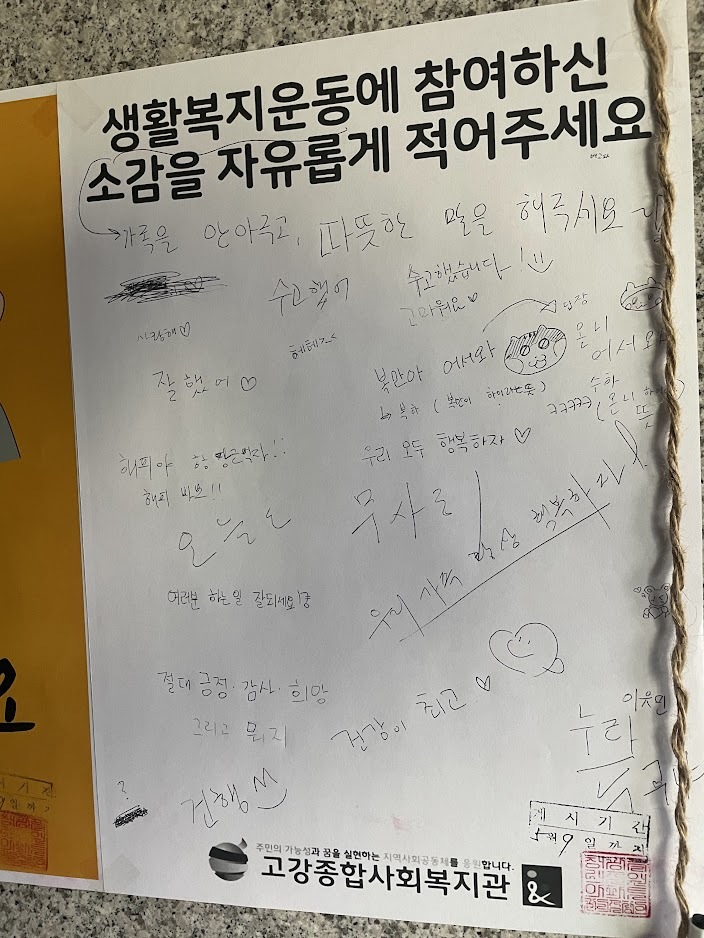 생활복지운동에 참여하신
소감을 자유롭게 적어주세요
배고파
가족을 안아주고, 따뜻한 말을 해주세요
수고했어
수고했습니다!
고마워요♡
사랑해♡
헤헤ㅈㅅ
잘했어♡
복만아 어서와
온니
어서와
↳ 복하 (복만이 하이라는 뜻)
수하
ㅋㅋㅋㅋㅋ (온니 하이
뜻
우리 모두 행복하자♡
해피야
해피 바보!!
오늘도
무사히
우리 가족 항상 행복하자!
여러분 하는일 잘되세요
절대 긍정·감사·희망
그리고
건강이 최고♡
이웃면
누라
건행
게시기간
5월 9일까지
주민의 가능성과 꿈을 실현하는 지역사회공동체를 응원합니다.
고강종합사회복지관
요
9일까지